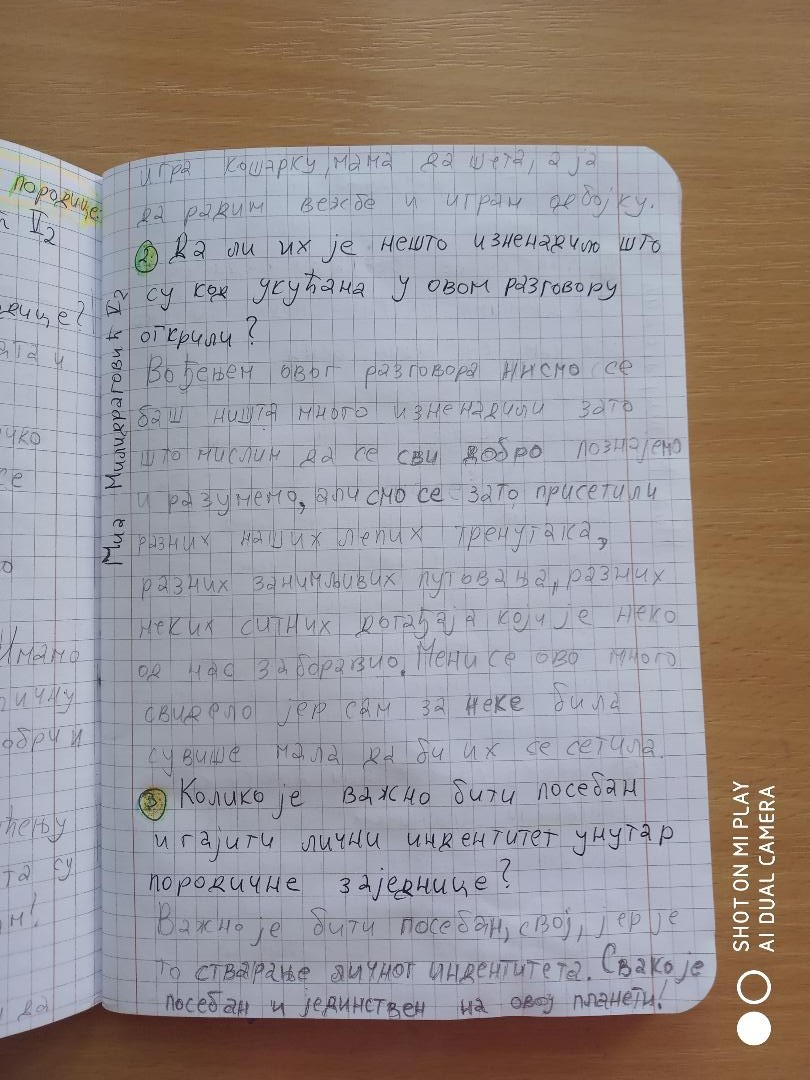 породице
V2
игра кошарку, мама да шета, а ја
да радим вежбе и играм одбојку.
2. Да ли их је нешто изненадило што
су код укућана у овом разговору
открили?
Вођењем овог разговора нисмо се
баш ништа много изненадили зато
што мислим да се сви добро познајемо
и разумемо, али смо се зато присетили
разних наших лепих тренутака,
разних занимљивих путовања, разних
неких ситних догађаја који је неко
од нас заборавио. Мени се ово много
свидело јер сам за неке била
сувише мала да би их се сетила.
3. Колико је важно бити посебан
и гајити лични индентитет унутар
породичне заједнице?
Важно је бити посебан, свој, јер је
то стварање личног индентитета. Свако је
посебан и јединствен на овој планети!
Миа Милидраговић V2
Имамо
SHOT ON MI PLAY
AI DUAL CAMERA